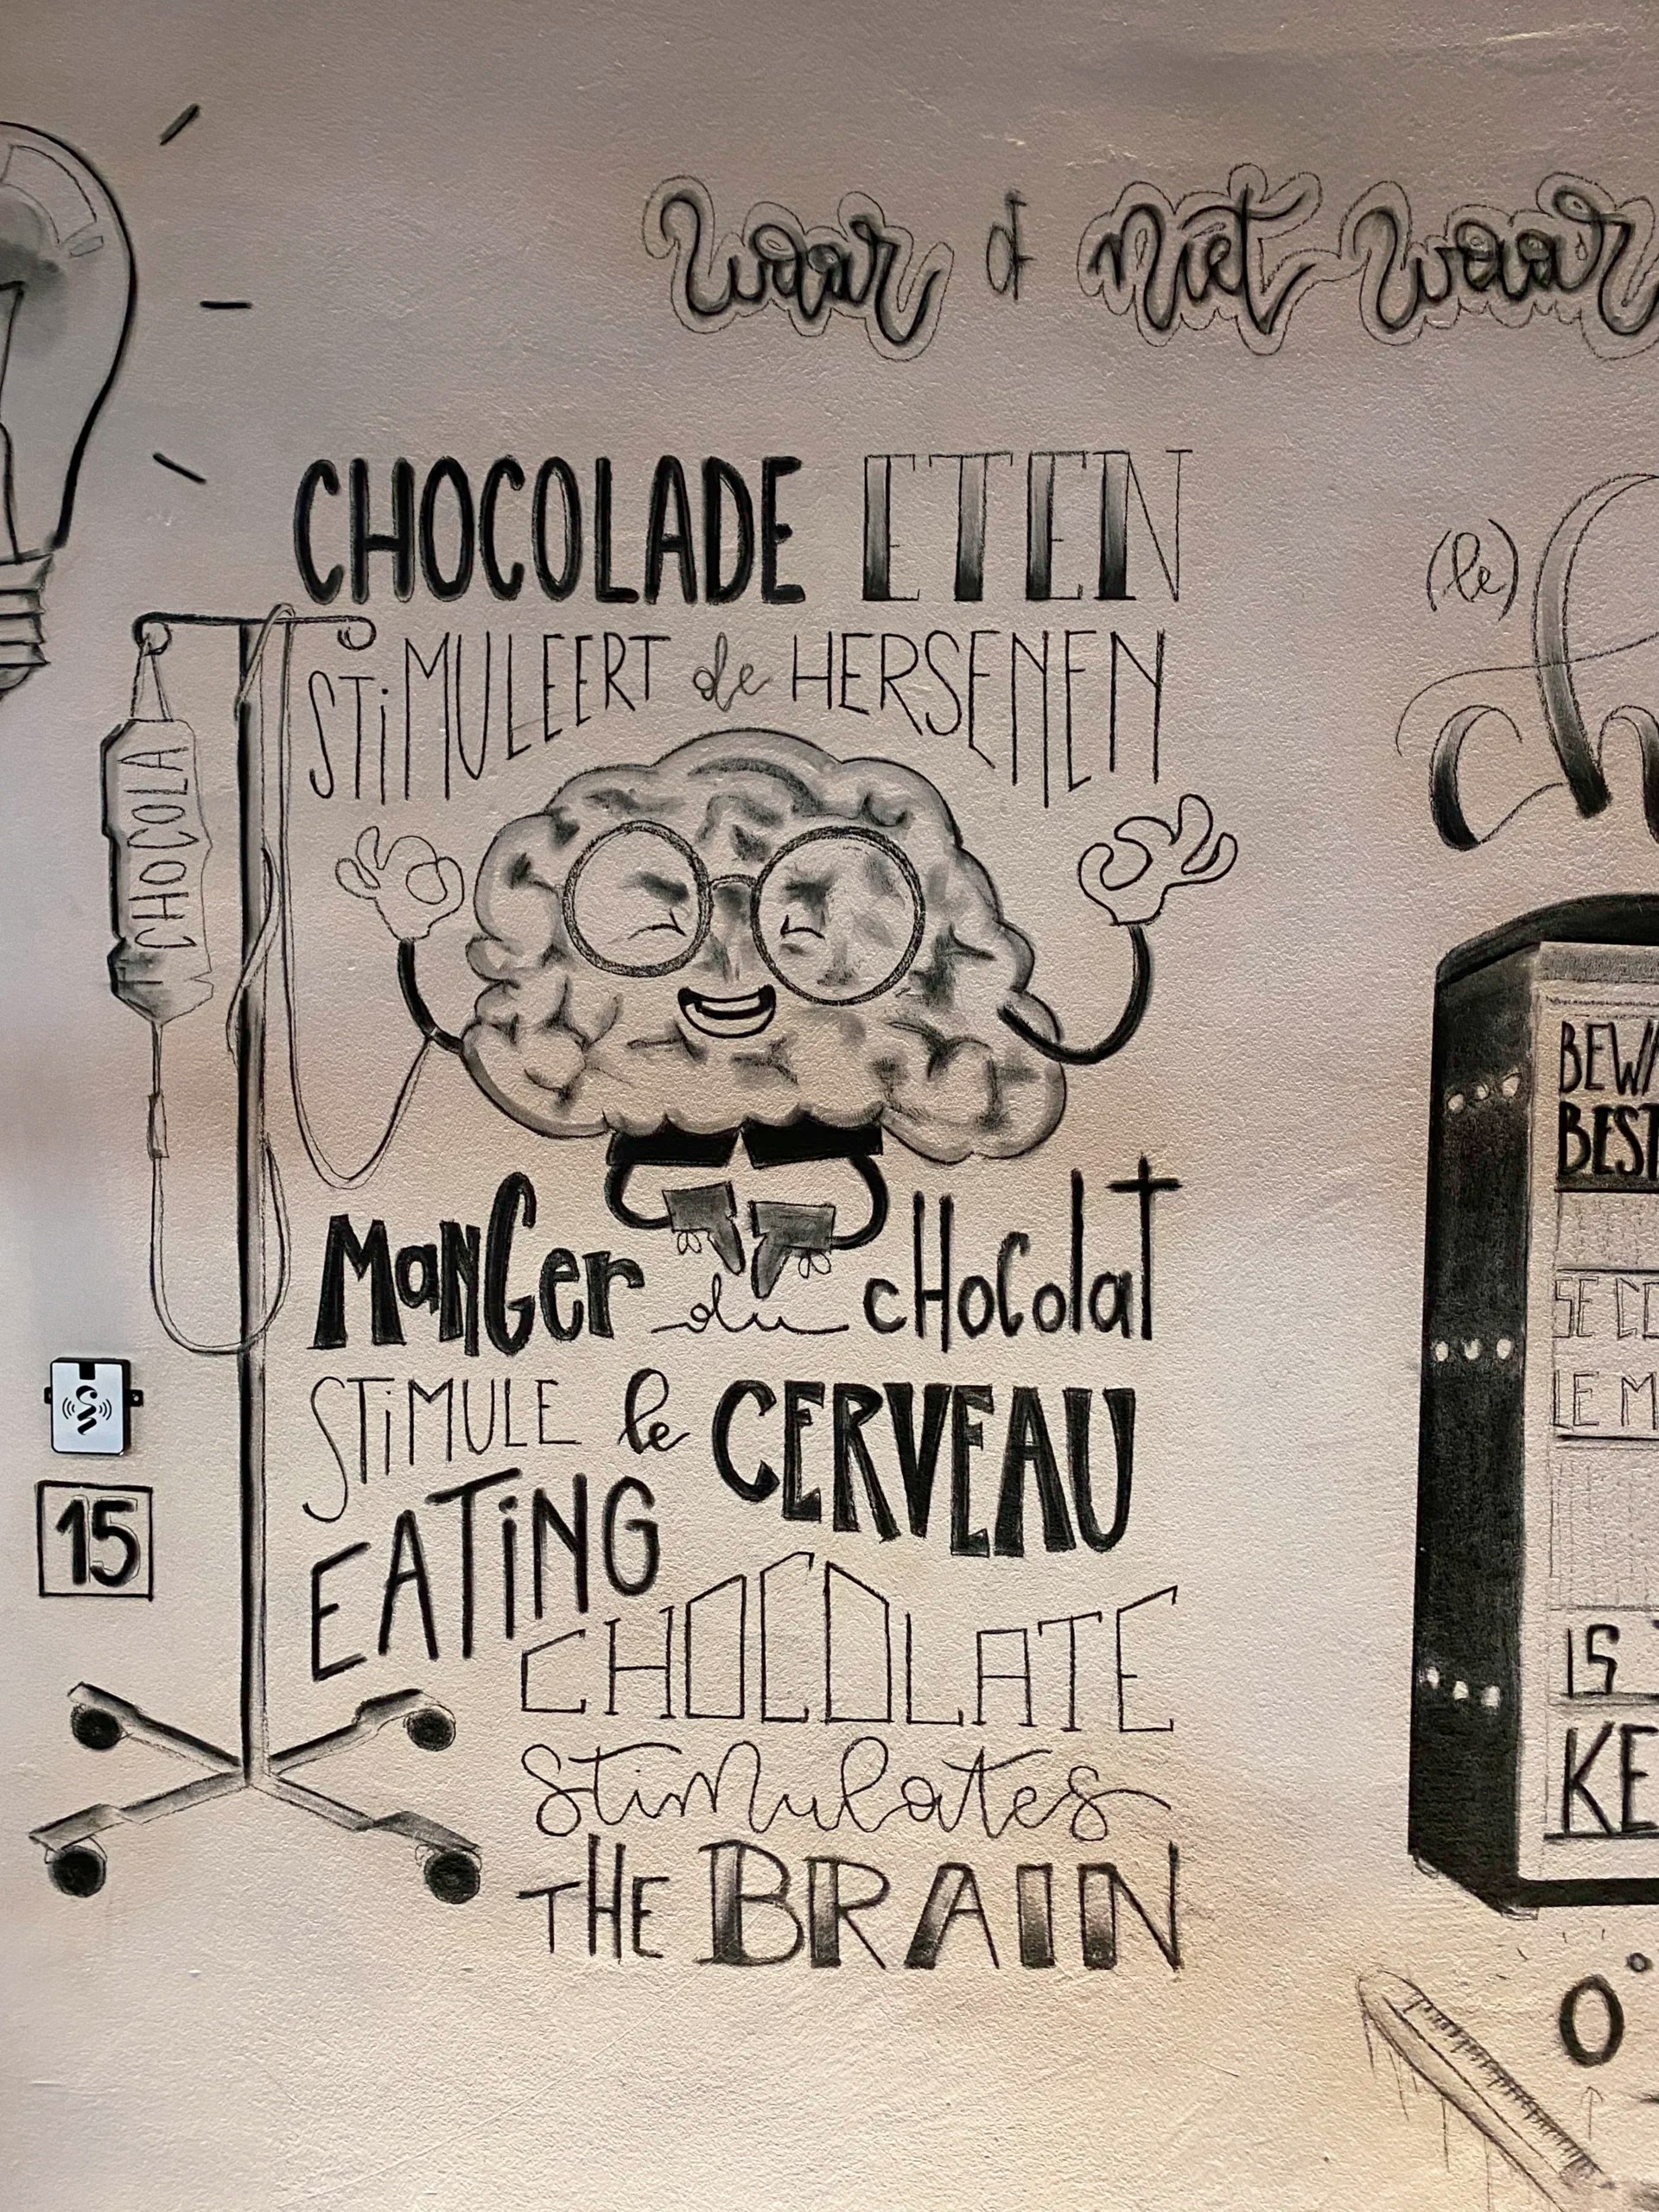 waar of niet waar
CHOCOLADE ETEN
STiMULEERT de HERSENEN
CHOCOLA
MaNGer du cHoColat
STiMULE le CERVEAU
EATiNG
CHOCOLATE
stiMulates
THE BRAIN
15
(le)
BEST
SE
LE M
IS
KE
0°